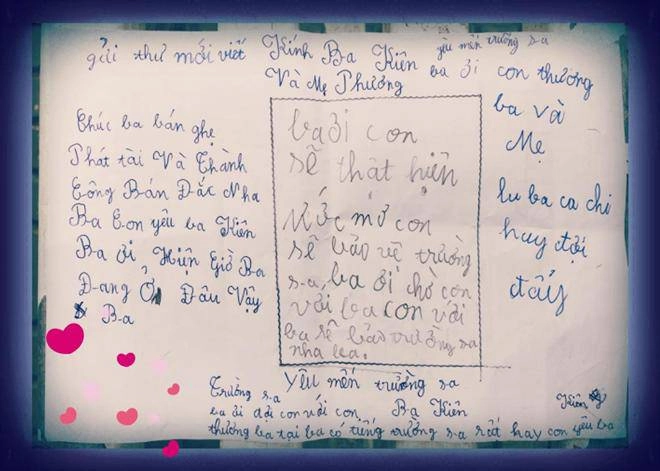 gửi thư mới viết
Kính Ba Kiên
Và Mẹ Phương
yêu mến trường sa
ba ơi con thương
ba và
Mẹ
lu ba ca chi
huy đợi
đấy
Chúc ba bán ghẹ
Phát tài Và Thành
Công Bán Đắc Nha
Ba Con yêu ba Kiên
Ba ơi Hiện Giờ Ba
Đang Ở Đâu Vậy
Ba
ba ơi con
sẽ thật hiện
Ước mơ con
sẽ bảo vệ trường
sa, ba ơi chờ con
với ba con với
ba sẽ bảo trường sa
nha ba.
Yêu mến trường sa
Trường sa
ba ơi đợi con với con,
Ba Kiên
Kiên
thương ba tại ba có tiếng trưởng sa rất hay con yêu ba